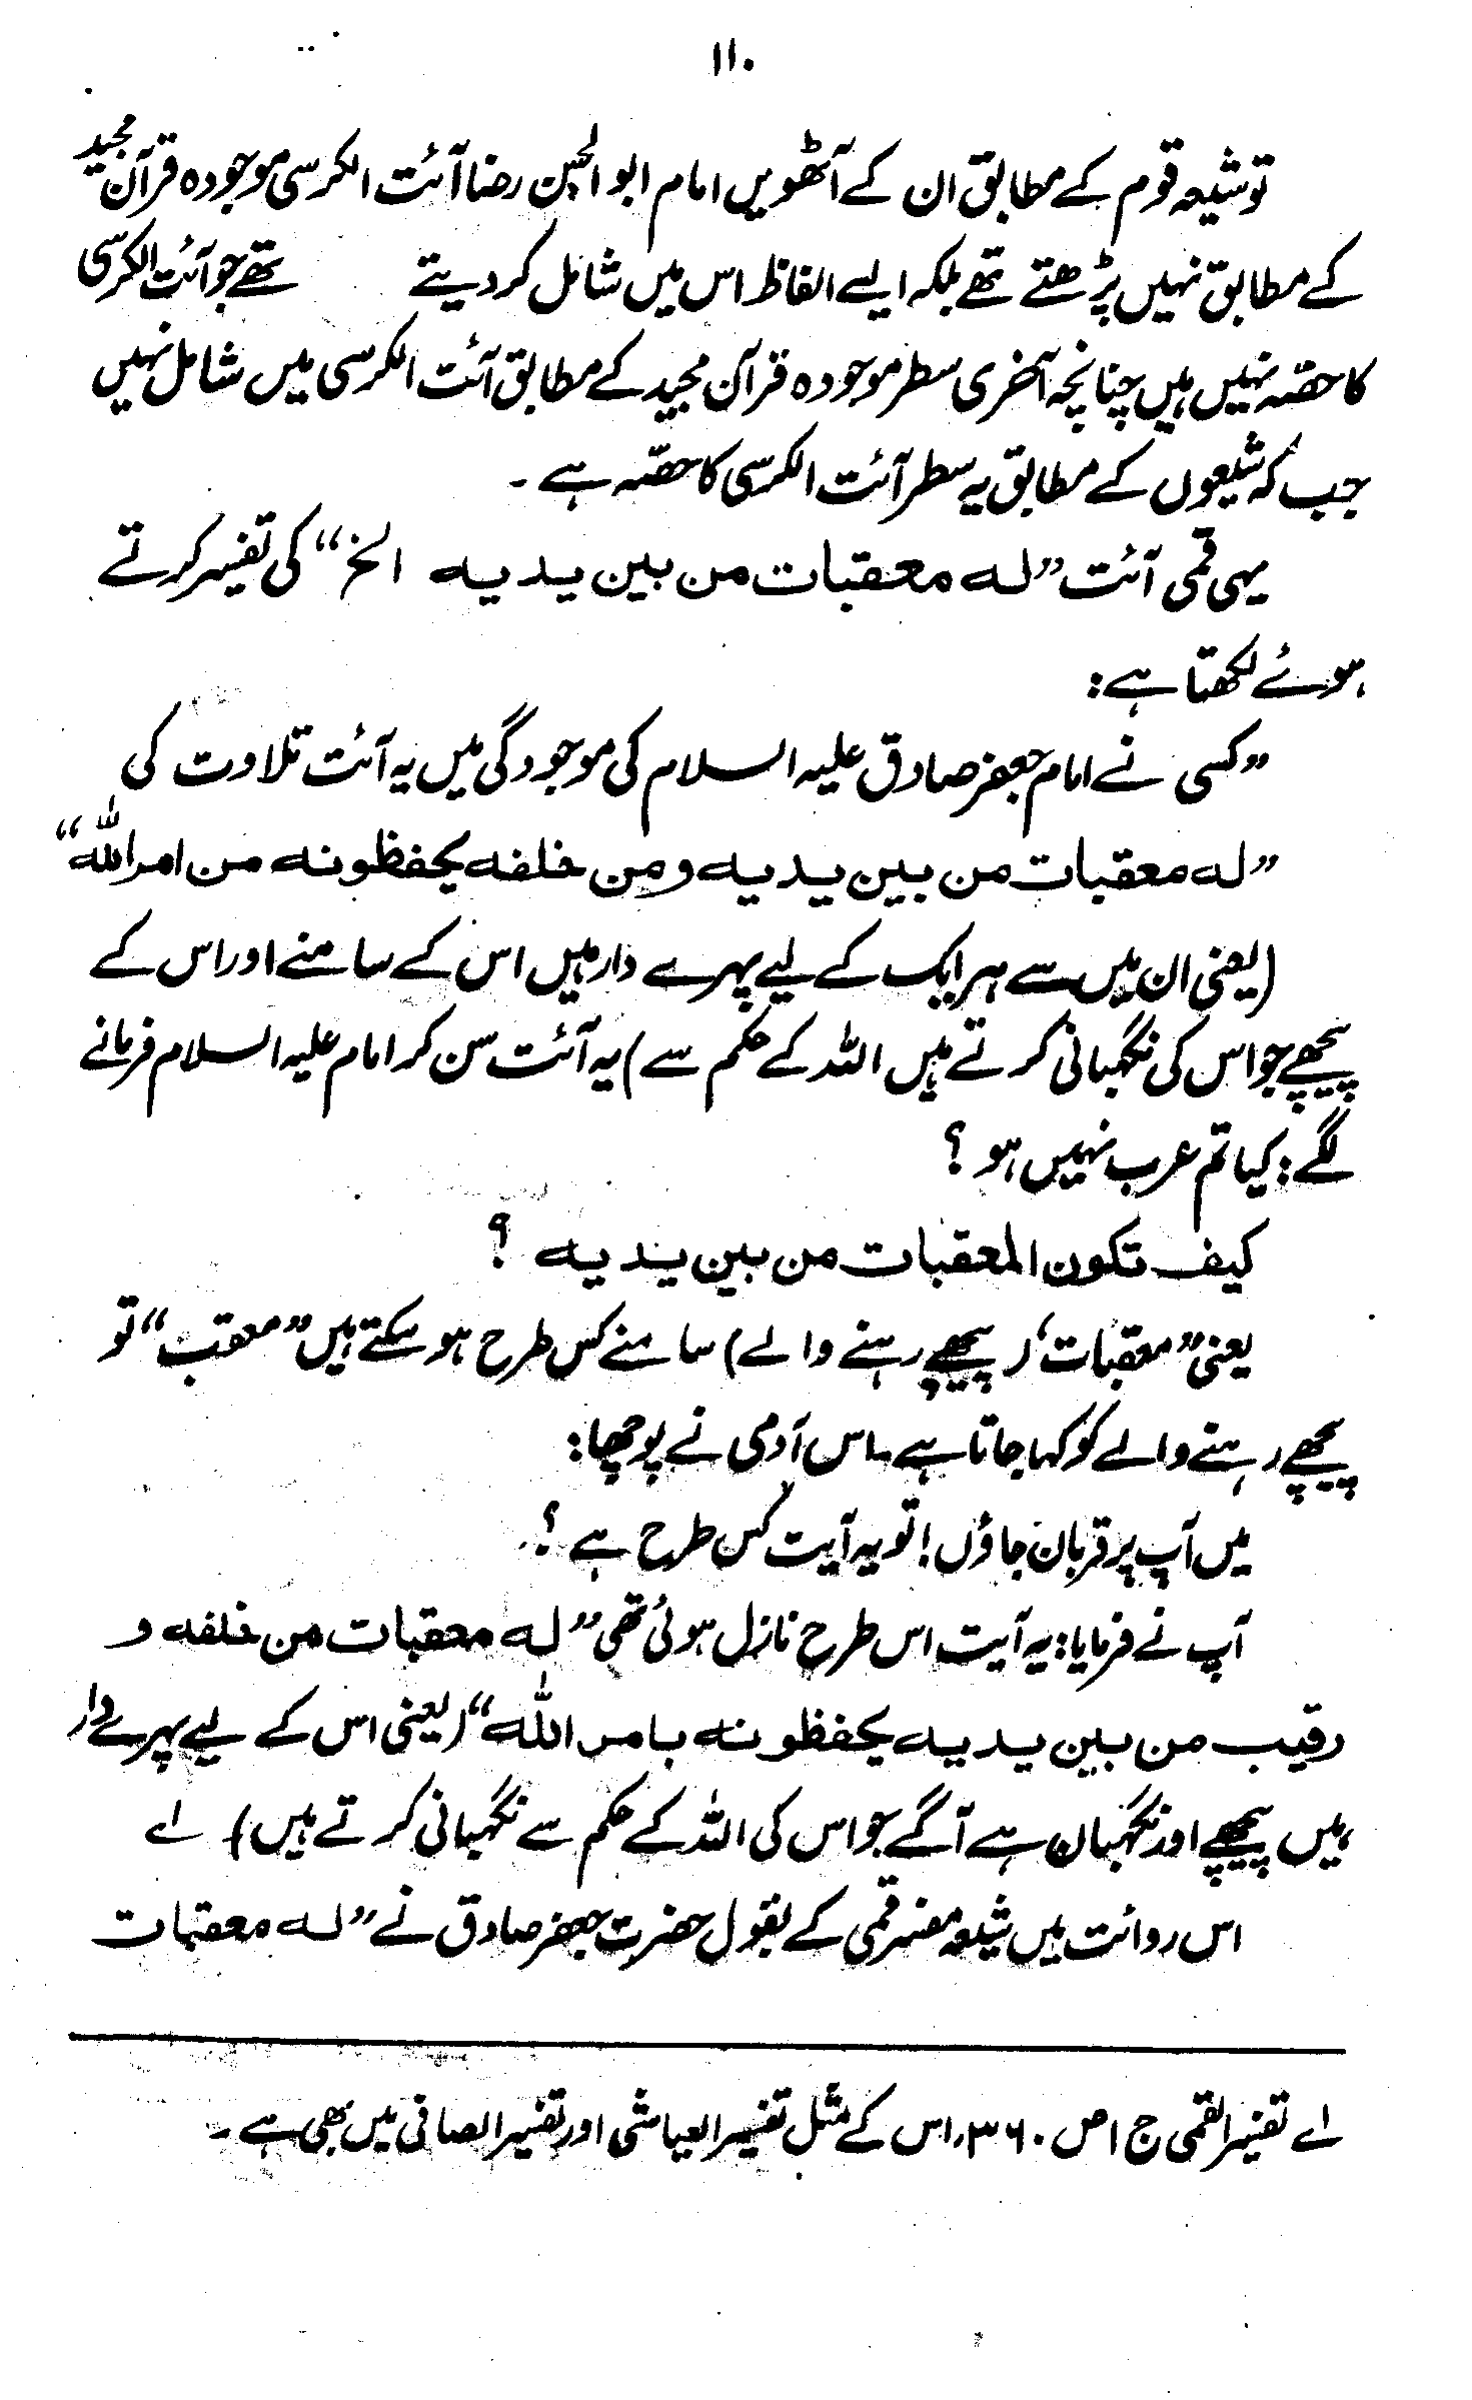 ۱۱۰
تو شیعہ قوم کے مطابق ان کے آٹھویں امام ابو الحسن رضا آئت الکرسی موجودہ قرآن مجید
کے مطابق نہیں پڑھتے تھے بلکہ ایسے الفاظ اس میں شامل کر دیتے تھے جو آئت الکرسی
کا حصّہ نہیں ہیں چنانچہ آخری سطر موجودہ قرآن مجید کے مطابق آئت الکرسی میں شامل نہیں
جب کہ شیعوں کے مطابق یہ سطر آئت الکرسی کا حصّہ ہے ۔
یہی قمی آئت ”لہ معقبات من بین یدیہ الخ“ کی تفسیر کرتے
ہوئے لکھتا ہے :
”کسی نے امام جعفر صادق علیہ السلام کی موجودگی میں یہ آئت تلاوت کی
”لہ معقبات من بین یدیہ ومن خلفہ یحفظونہ من امر اللّٰہ“
(یعنی ان میں سے ہر ایک کے لیے پہرے دار ہیں اس کے سامنے اور اس کے
پیچھے جو اس کی نگہبانی کرتے ہیں اللہ کے حکم سے) یہ آئت سن کر امام علیہ السلام فرمانے
لگے : کیا تم عرب نہیں ہو ؟
کیف تکون المعقبات من بین یدیہ ؟
یعنی ”معقبات“ (پیچھے رہنے والے) سامنے کس طرح ہو سکتے ہیں ”معقب“ تو
پیچھے رہنے والے کو کہا جاتا ہے ۔ اس آدمی نے پوچھا :
میں آپ پر قربان جاؤں ! تو یہ آیت کس طرح ہے ؟
آپ نے فرمایا : یہ آیت اس طرح نازل ہوئی تھی ”لہ معقبات من خلفہ و
رقیب من بین یدیہ یحفظونہ بامر اللّٰہ“ (یعنی اس کے لیے پہرے دار
ہیں پیچھے اور نگہبان ہے آگے جو اس کی اللہ کے حکم سے نگہبانی کرتے ہیں) لے
اس روائت میں شیعہ مفسر قمی کے بقول حضرت جعفر صادق نے ”لہ معقبات
لے تفسیر القمی ج ۱ ص ۳۶۰، اس کے مثل تفسیر العیاشی اور تفسیر الصافی میں بھی ہے ۔